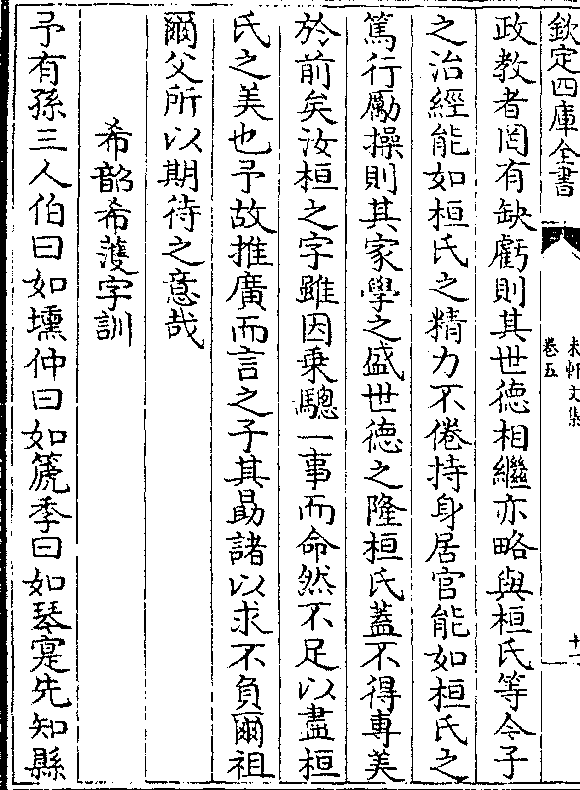 欽定四庫全書
未軒文集
卷五
十一
政教者罔有缺虧則其世德相繼亦略與桓氏等令子
之治經能如桓氏之精力不倦持身居官能如桓氏之
篤行勵操則其家學之盛世德之隆桓氏蓋不得專美
於前矣汝桓之字雖因乗驄一事而命然不足以盡桓
氏之美也予故推廣而言之子其勗諸以求不負爾祖
爾父所以期待之意哉
希韶希䕶字訓
予有孫三人伯曰如壎仲曰如篪季曰如琴寔先知縣